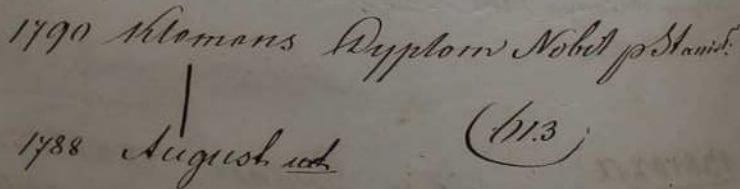 1790 Klemens Dyplom Nobil p Stanisł:
1788 August